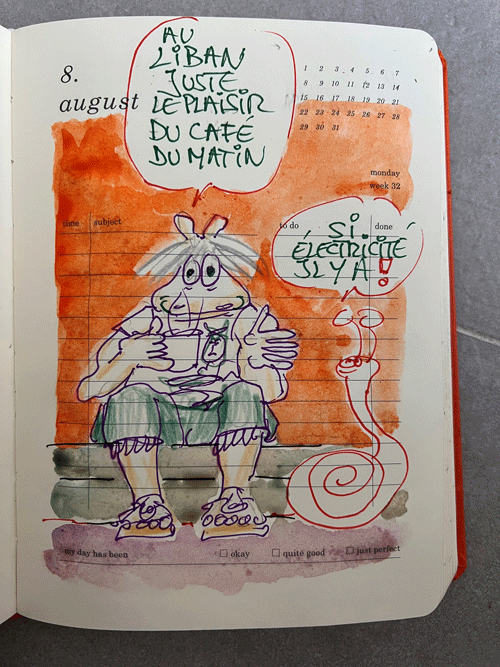 AU
LIBAN
JUSTE
LE PLAISIR
DU CAFÉ
DU MATIN
8.
august
1 2 3 4 5 6 7
8 9 10 11 12 13 14
15 16 17 18 19 20 21
22 23 24 25 26 27 28
29 30 31
monday
week 32
time subject
to do done
SI.
ÉLECTRICITÉ
IL Y A !
my day has been
okay quite good just perfect